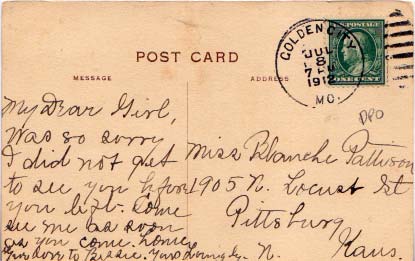 POST CARD
MESSAGE
ADDRESS
GOLDEN CITY
JUL
8
7 PM
1912
MO.
U.S. POSTAGE
ONE CENT
DPO
My Dear Girl,
Was so sorry
I did not get
to see you before
you left. Come
see me as soon
as you come home
Give love to Bessie. Yours Lovingly - N.
Miss Blanche Pattison
1905 N. Locust St
Pittsburg
Kans.